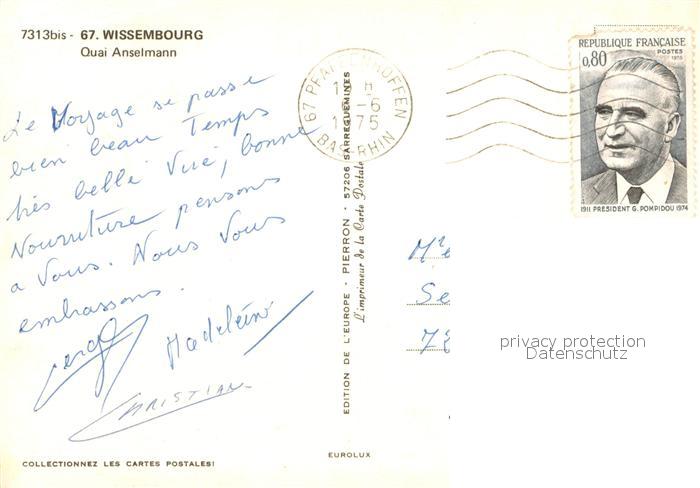 7313bis - 67. WISSEMBOURG
Quai Anselmann
Le Voyage se passe
bien beau Temps
très belle Vue, bonne
Nourriture pensons
a Vous. Nous Vous
embrassons.
Serge
Madeleine
CHRISTIAN
COLLECTIONNEZ LES CARTES POSTALES!
EDITION DE L'EUROPE - PIERRON - 57206 SARREGUEMINES
L'imprimeur de la Carte Postale
EUROLUX
67 PFAFFENHOFFEN
-6
1975
BAS-RHIN
REPUBLIQUE FRANÇAISE
0,80
POSTES
1975
1911 PRESIDENT G. POMPIDOU 1974
Se
privacy protection
Datenschutz